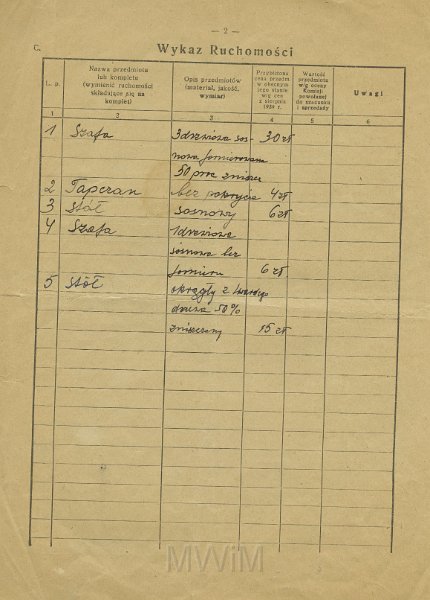 — 2 —
C.
Wykaz Ruchomości
L. p.
Nazwa przedmiotu
lub kompletu
(wymienić ruchomości
składające się na
komplet)
Opis przedmiotów
(materiał, jakość,
wymiar)
Przybliżona
cena przedm.
w obecnym
jego stanie
wg cen
z sierpnia
1939 r.
Wartość
przedmiotu
w/g oceny
Komisji
powołanej
do szacunku
i sprzedaży
Uwagi
1 2 3 4 5 6
1 Szafa 3 drzwiowa sos- 30 zł
nowa fornirowana
50 proc zniszcz
2 Tapczan bez pokrycia 4 zł
3 Stół sosnowy 6 zł
4 Szafa 1 drzwiowa
sosnowa bez
forniru 6 zł
5 Stół okrągły z twardego
drzewa 50%
zniszczony 15 zł
MWiM